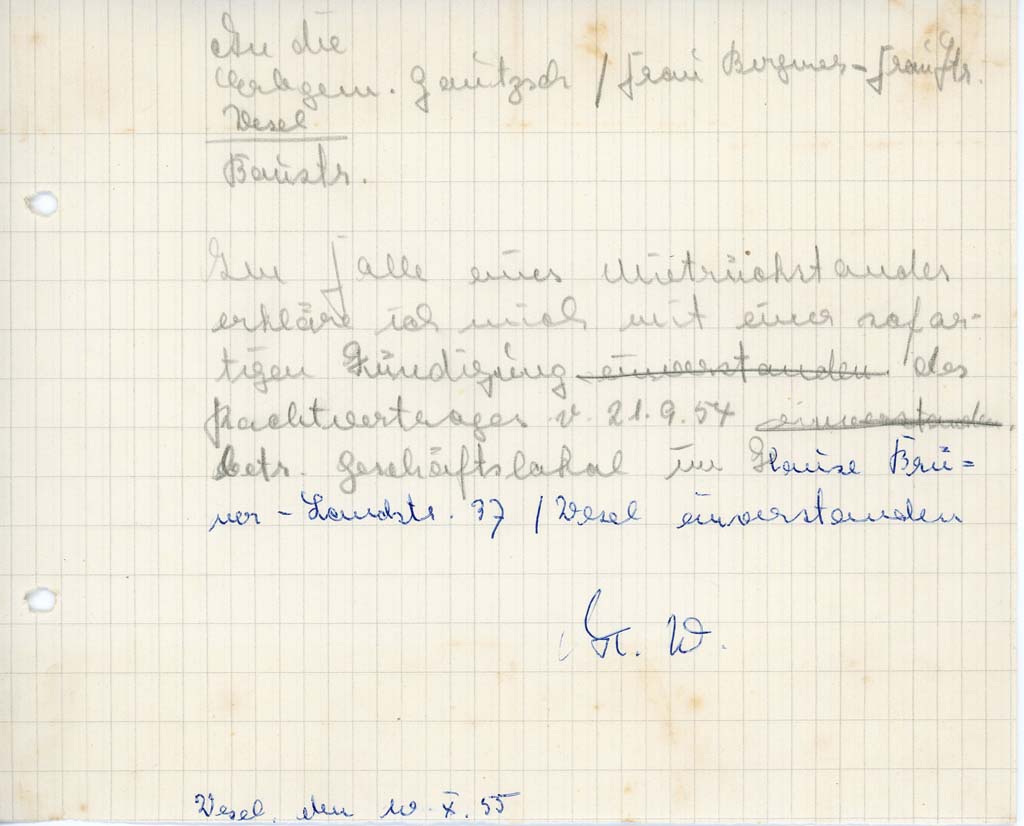 An die
Erbgem. Gautzsch / Frau Birgmes - Frau Gtr.
Wesel
Baustr.
Im Falle eines Mietrückstandes
erkläre ich mich mit einer sofor-
tigen Kündigung einverstanden des
Pachtvertrages v. 21.9.54 einverstanden
betr. Geschäftslokal im Hause Brü-
ner-Landstr. 37 / Wesel einverstanden
W.
Wesel, den 10.X.55